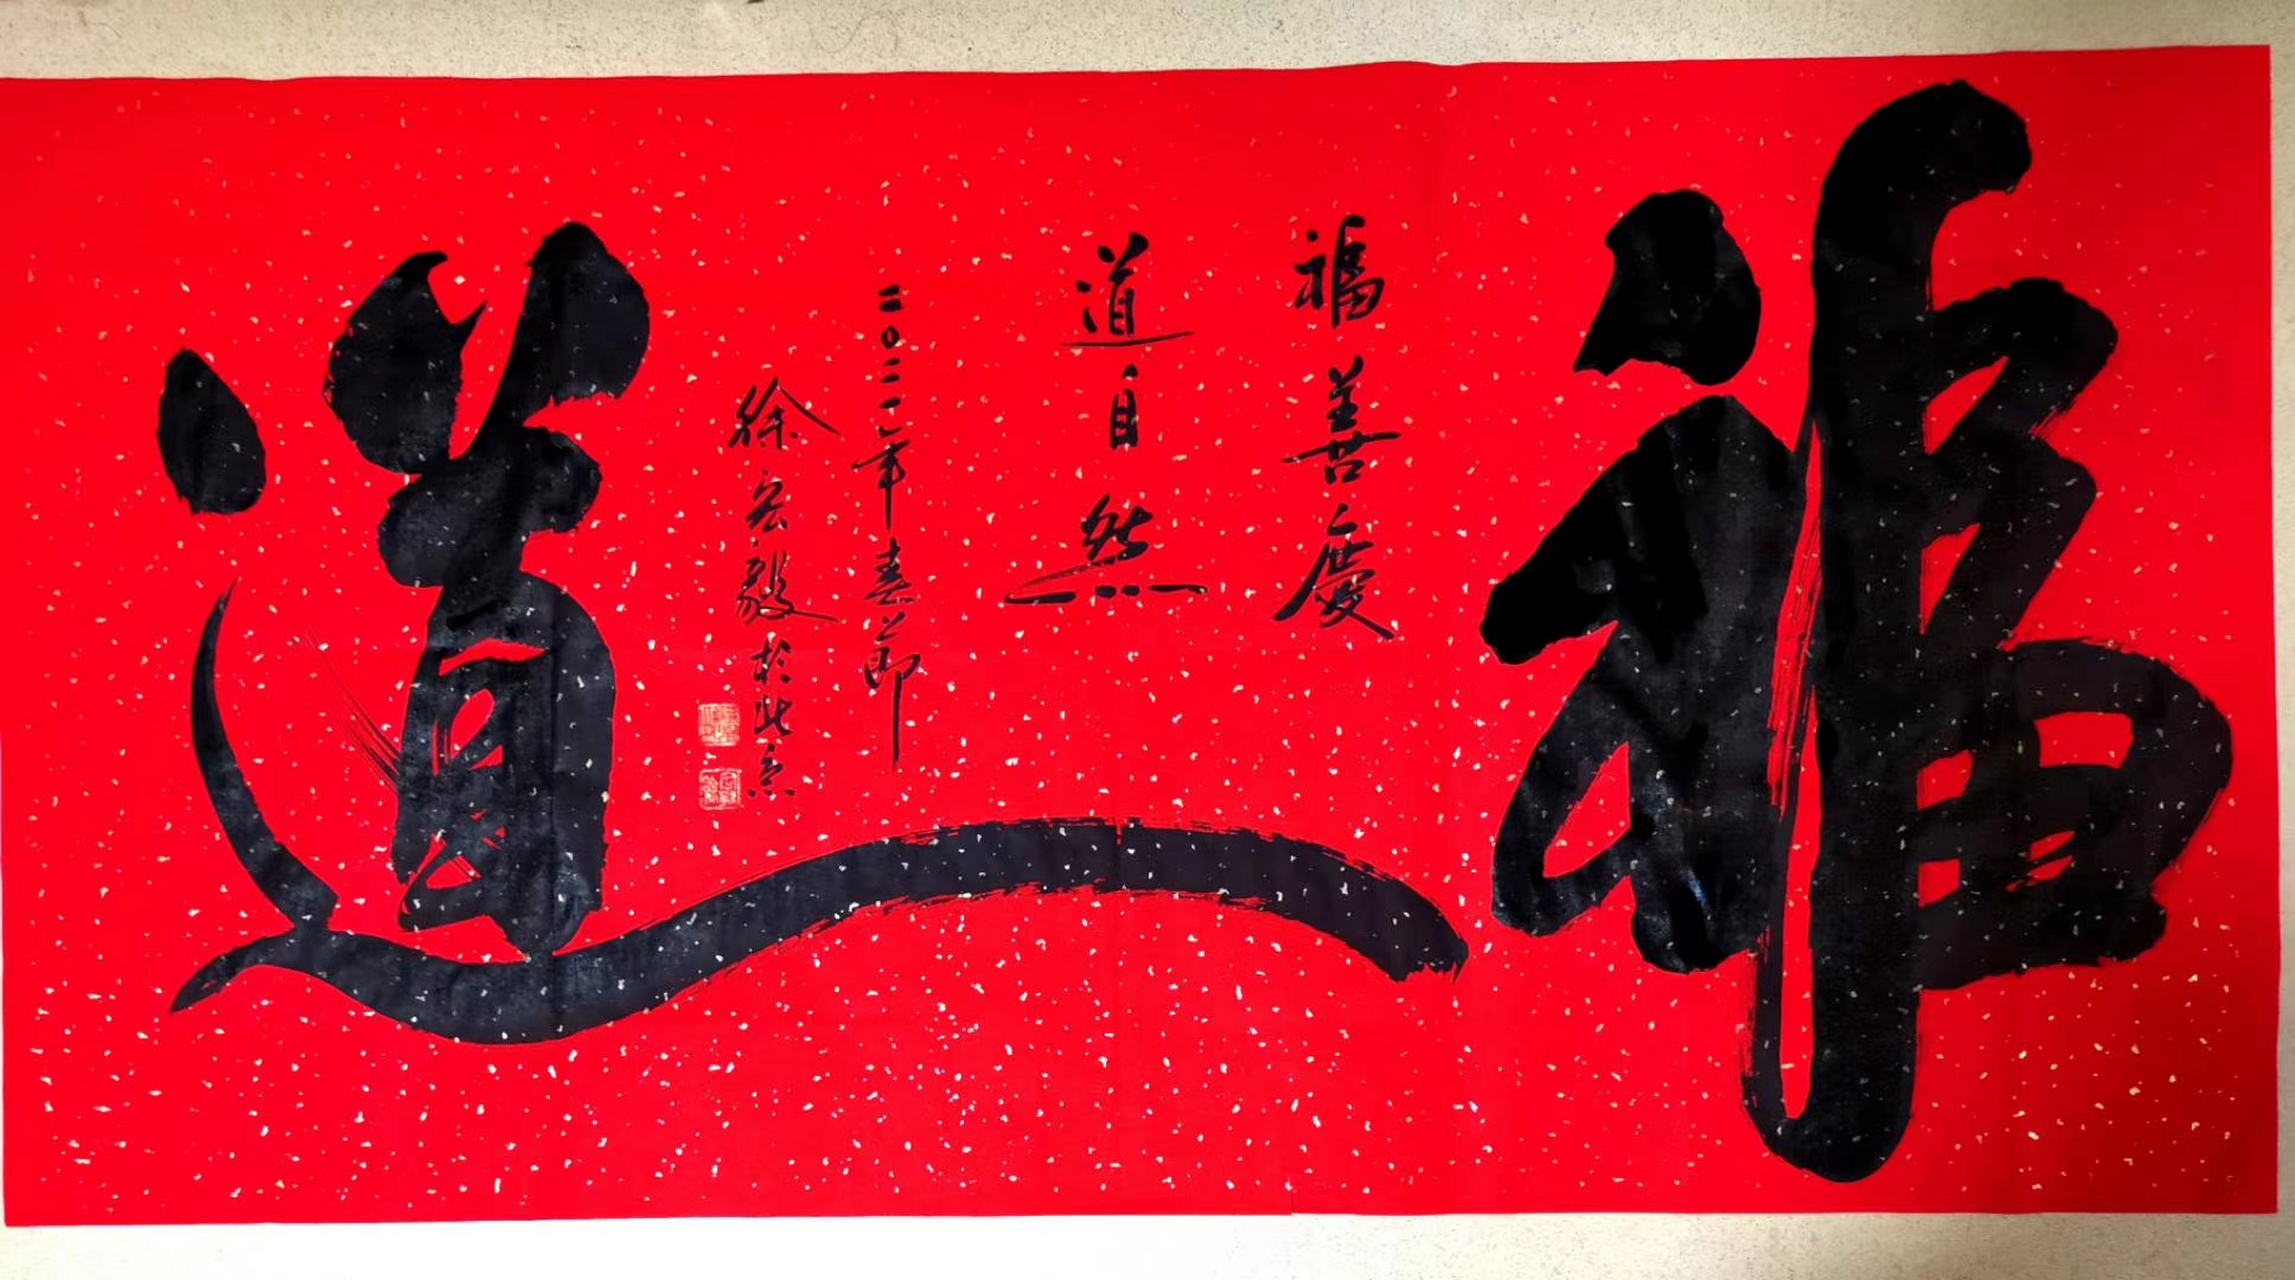 福道
福善慶
道自然
二〇二一年春節
徐宏毅於北京